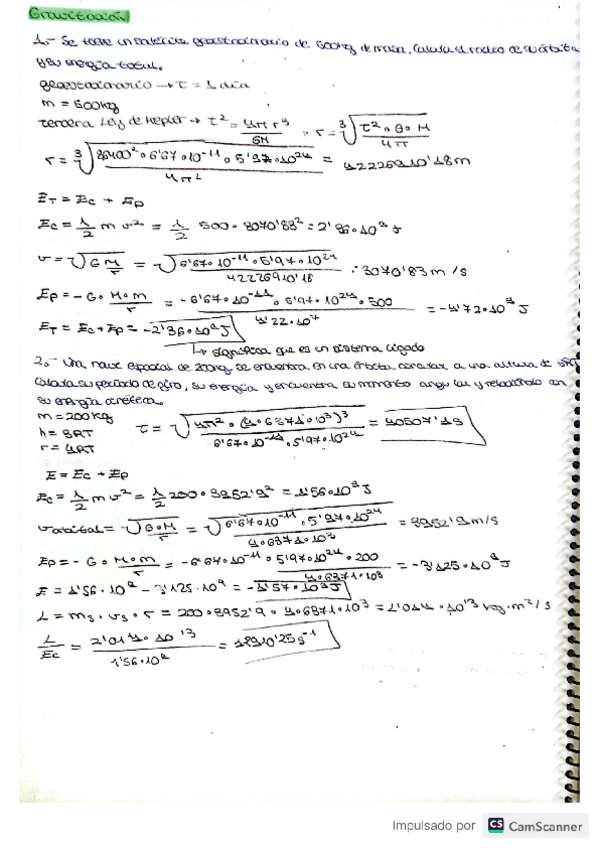 Gravitación
1.- Se tiene un satélite geoestacionario de 500kg de masa, calcula el radio de su órbita
y su energía total.
geoestacionario → τ = 1 día
m = 500kg
tercera Ley de Kepler → τ² = 4π r³ / GM → r = ³√(τ² · G · M / 4π)
r = ³√(86400² · 6'67·10⁻¹¹ · 5'97·10²⁴ / 4π²) = 42226910'18m
E_T = Ec + Ep
Ec = 1/2 m v² = 1/2 500 · 3070'83² = 2'36·10⁹ J
v = √(G M/r) = √(6'67·10⁻¹¹ · 5'97·10²⁴ / 42226910'18) = 3070'83 m/s
Ep = - G · M·m / r = - 6'67·10⁻¹¹ · 5'97·10²⁴ · 500 / 4'22·10⁷ = -4'72·10⁹ J
E_T = Ec + Ep = -2'36·10⁹ J
↳ significa que es un sistema ligado
2.- Una nave espacial de 200kg se encuentra en una órbita circular a una altura de 3RT
Calcula su período de giro, su energía y encuentra su momento angular y relaciónalo con
su energía cinética.
m = 200kg
h = 3RT
r = 4RT
τ = √(4π² · (4·6371·10³)³ / 6'67·10⁻¹¹ · 5'97·10²⁴) = 40507'19
E = Ec + Ep
Ec = 1/2 m v² = 1/2 200 · 3952'9² = 1'56·10⁹ J
v orbital = √(G·M / r) = √(6'67·10⁻¹¹ · 5'97·10²⁴ / 4·6371·10³) = 3952'9 m/s
Ep = - G · M·m / r = - 6'67·10⁻¹¹ · 5'97·10²⁴ · 200 / 4·6371·10³ = -3'125·10⁹ J
E = 1'56·10⁹ - 3'125·10⁹ = -1'57·10⁹ J
L = ms · vs · r = 200 · 3952'9 · 4·6371·10³ = 2'014·10¹³ kg·m²/s
L / Ec = 2'014·10¹³ / 1'56·10⁹ = 12910'25 s⁻¹
Impulsado por CS CamScanner